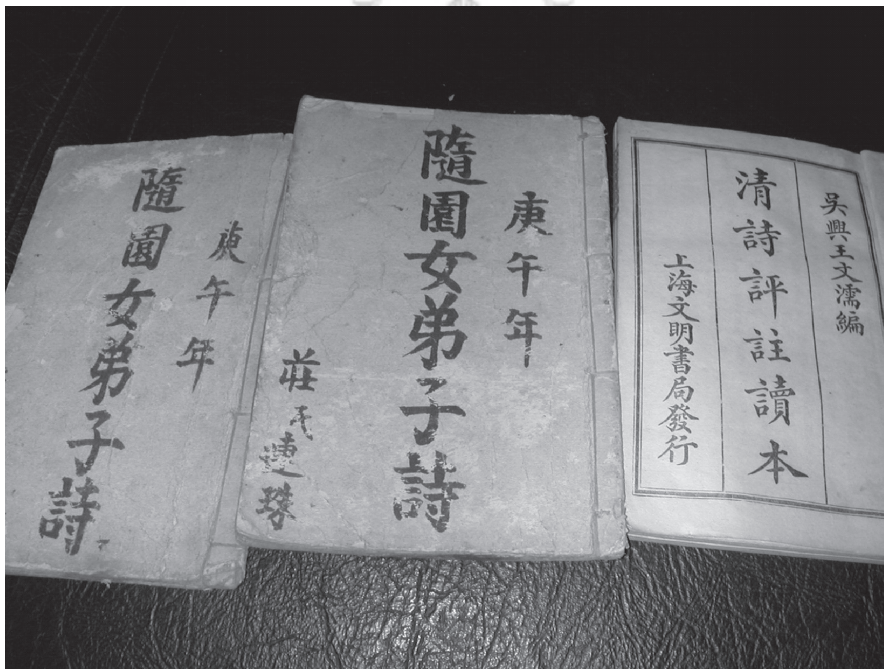 庚午年
隨園女弟子詩
庚午年
隨園女弟子詩
莊氏連珠
吳興王文濡編
清詩評註讀本
上海文明書局發行